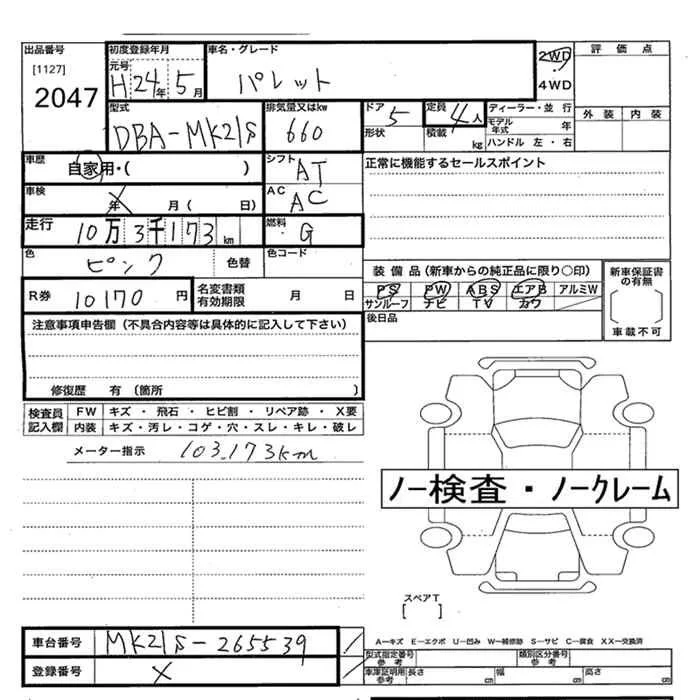 出品番号 初度登録年月 車名・グレード 2WD 評価点
[1127] 元号 4WD
2047 H24年5月 パレット
型式 排気量又はkw ドア 定員 ディーラー・並行 外装 内装
DBA-MK21S 660 5 4人 モデル年式 年
形状 積載 kg ハンドル 左・右
車歴 自家用・( ) シフト AT 正常に機能するセールスポイント
車検 X 年 月( 日) AC AC
走行 10万3千173km 燃料 G
色 ピンク 色替 色コード
装備品(新車からの純正品に限り○印) 新車保証書の有無
R券 10170円 名変書類有効期限 月 日 PS PW ABS エアB アルミW
サンルーフ ナビ TV カワ
注意事項申告欄(不具合内容等は具体的に記入して下さい) 後日品 車載不可
修復歴 有(箇所 )
検査員記入欄 FW キズ・飛石・ヒビ割・リペア跡・X要
内装 キズ・汚レ・コゲ・穴・スレ・キレ・破レ
メーター指示 103.173km
ノー検査・ノークレーム
スペアT
[ ]
車台番号 MK21S-265539
A―キズ E―エクボ U―凹み W―補修跡 S―サビ C―腐食 XX―交換済
型式指定番号 参考 類別区分番号 参考
登録番号 X 車庫証明用 参考 長さ cm 幅 cm 高さ cm